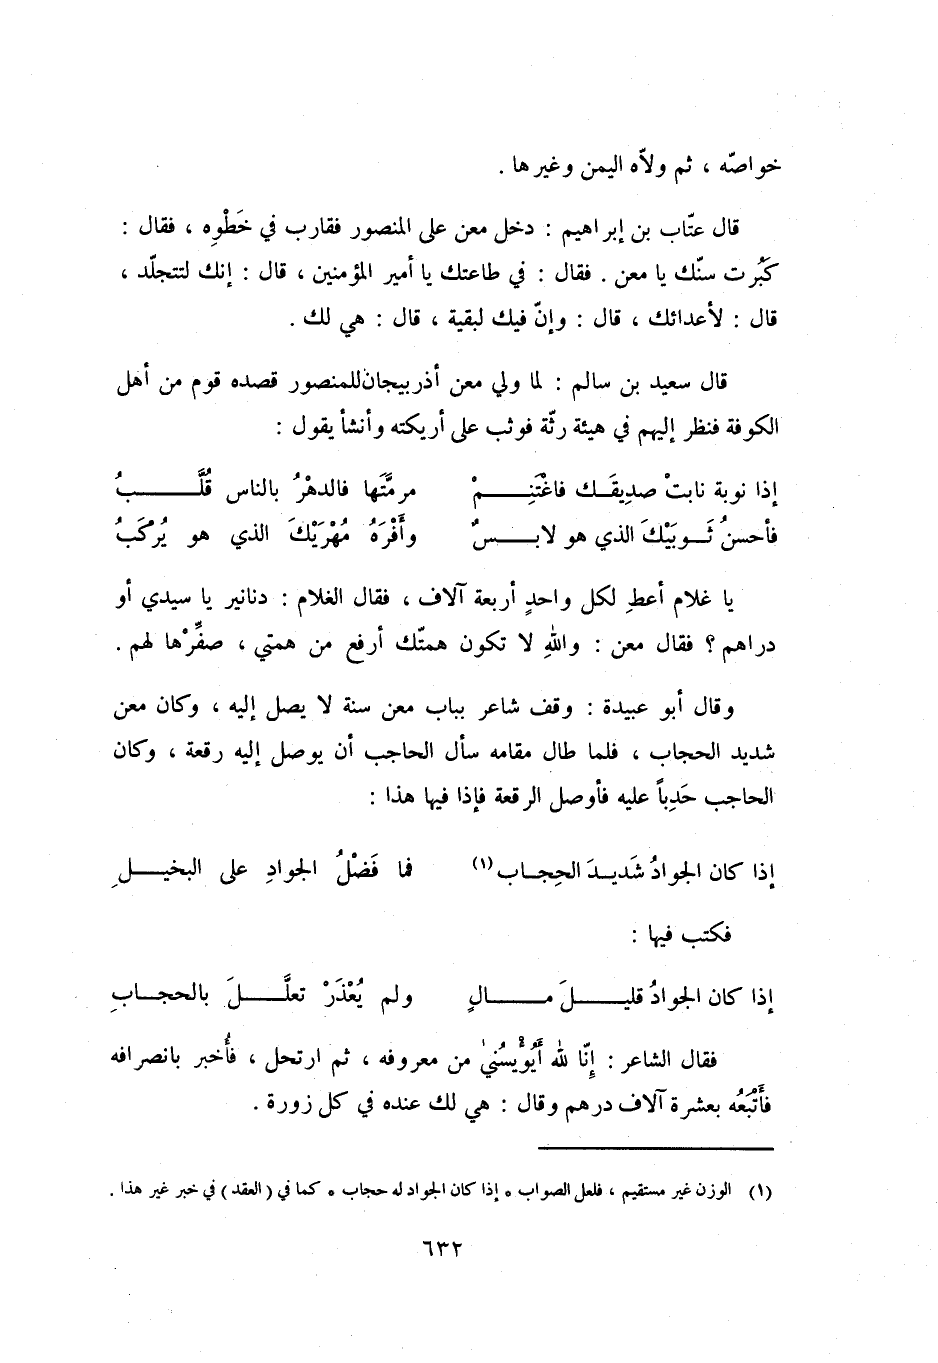 خواصّه ، ثم ولاّه اليمن وغيرها .
قال عتّاب بن إبراهيم : دخل معن على المنصور فقارب في خَطْوِه ، فقال :
كَبُرت سنّك يا معن . فقال : في طاعتك يا أمير المؤمنين ، قال : إنك لتتجلّد ،
قال : لأعدائك ، قال : وإنّ فيك لبقية ، قال : هي لك .
قال سعيد بن سالم : لما ولي معن أذربيجان للمنصور قصده قوم من أهل
الكوفة فنظر إليهم في هيئة رثّة فوثب على أريكته وأنشأ يقول :
إذا نوبة نابتْ صديقَك فاغْتَنِمْ مرمَّتَها فالدهْرُ بالناس قُلَّبُ
فأحسنُ ثَوبَيْكَ الذي هو لابسٌ وأَفْرَهُ مُهْرَيْكَ الذي هو يُرْكَبُ
يا غلام أعطِ لكل واحدٍ أربعة آلاف ، فقال الغلام : دنانير يا سيدي أو
دراهم ؟ فقال معن : واللهِ لا تكون همتّك أرفع من همتي ، صفِّرْها لهم .
وقال أبو عبيدة : وقف شاعر بباب معن سنة لا يصل إليه ، وكان معن
شديد الحجاب ، فلما طال مقامه سأل الحاجب أن يوصل إليه رقعة ، وكان
الحاجب حَدِباً عليه فأوصل الرقعة فإذا فيها هذا :
إذا كان الجوادُ شَديدَ الحِجاب (١) فما فَضْلُ الجوادِ على البخيلِ
فكتب فيها :
إذا كان الجوادُ قليلَ مالٍ ولم يُعْذَرْ تعلَّلَ بالحجابِ
فقال الشاعر : إِنّا لله أَيُؤْيسُني من معروفه ، ثم ارتحل ، فأُخبر بانصرافه
فأَتْبَعُه بعشرة آلاف درهم وقال : هي لك عنده في كل زورة .
(١) الوزن غير مستقيم ، فلعل الصواب ه إذا كان الجواد له حجاب ه كما في (العقد) في خبر غير هذا .
٦٣٢